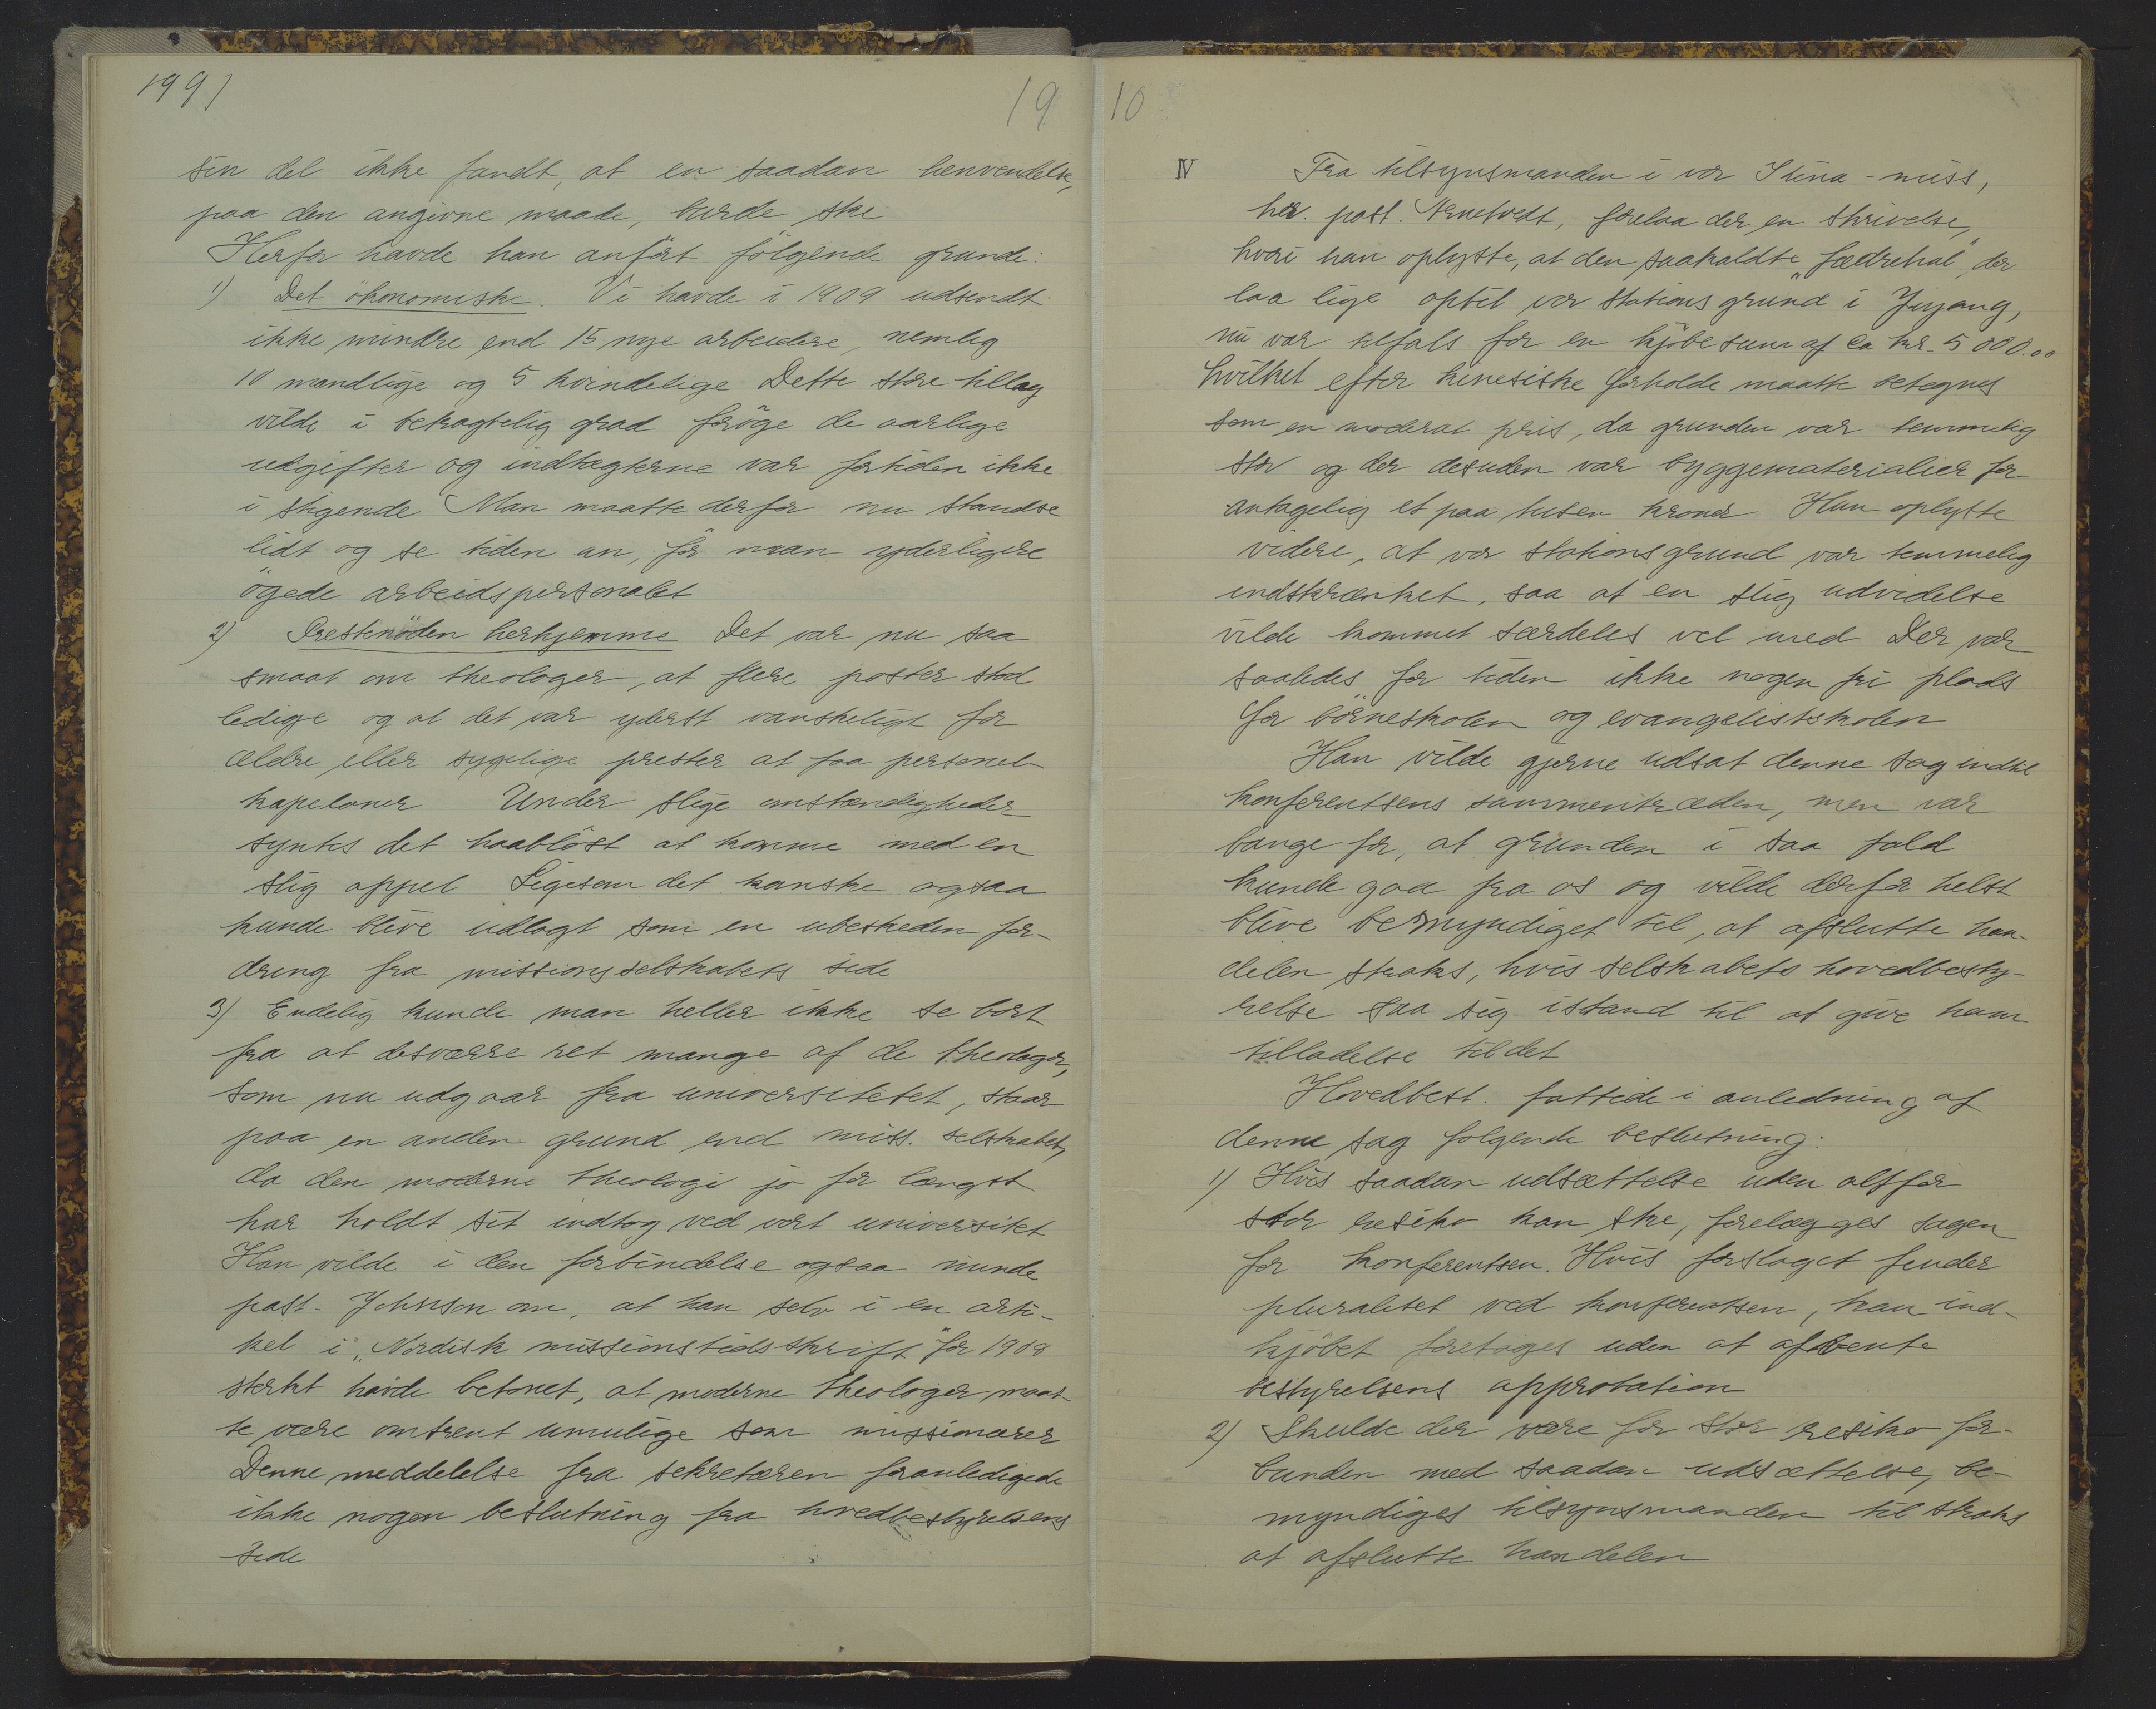 199)
19
sin del ikke fandt, at en saadan henvendelse,
paa den angivne maade, burde ske
Herfor havde han anført følgende grunde:
1) Det økonomiske. Vi havde i 1909 udsendt
ikke mindre end 15 nye arbeidere, nemlig
10 mandlige og 5 kvindelige Dette store tillæg
vilde i betragtelig grad forøge de aarlige
udgifter og indtægterne var fortiden ikke
i stigende Man maatte derfor nu standse
lidt og se tiden an, før man yderligere
øgede arbeidspersonalet
2) Prestenøden herhjemme Det var nu saa
smaat om theologer, at flere poster stod
ledige og at det var yderst vanskeligt for
ældre eller sygelige prester at faa personel-
kapelaner Under slige omstændigheder
syntes det haabløst at komme med en
slig appel Ligesom det kanske ogsaa
kunde blive udlagt som en ubeskeden for-
dring fra missionsselskabets side
3) Endelig kunde man heller ikke se bort
fra at desværre ret mange af de theologer,
som nu udgaar fra universitetet, staar
paa en anden grund end miss. selskabet,
da den moderne theologi jo for længst
har holdt sit indtog ved vort universitet
Han vilde i den forbindelse ogsaa minde
past. Johnson om, at han selv i en arti-
kel i „Nordisk missionstidsskrift" for 1908
sterkt havde betonet, at moderne theologer maat-
te være omtrent umulige som missionærer
Denne meddelelse fra sekretæren foranledigede
ikke nogen beslutning fra hovedbestyrelsens
side
10
IV Fra tilsynsmanden i vor Kina-miss,
hr. past. Arnetvedt, forelaa der en skrivelse,
hvori han oplyste, at den saakaldte „fædrehal", der
laa lige optil vor stationsgrund i Yiyang,
nu var tilfals for en kjøbesum af ca kr. 5000.00
hvilket efter kinesiske forholde maatte betegnes
som en moderat pris, da grunden var temmelig
stor og der desuden var byggematerialier for-
antagelig et paa tusen kroner Han oplyste
videre, at vor stationsgrund var temmelig
indskrænket, saa at en slig udvidelse
vilde kommet særdeles vel med Der var
saaledes for tiden ikke nogen fri plads
for børneskolen og evangelistskolen
Han vilde gjerne udsat denne sag indtil
konferentsens sammentræden, men var
bange for, at grunden i saa fald
kunde gaa fra os og vilde derfor helst
blive bemyndiget til, at afslutte han-
delen straks, hvis selskabets hovedbesty-
relse saa sig istand til at give ham
tilladelse til det
Hovedbest. fattede i anledning af
denne sag følgende beslutning:
1) Hvis saadan udsættelse uden altfor
stor resiko kan ske, forelægges sagen
for konferentsen. Hvis forslaget finder
pluralitet ved konferentsen, kan ind-
kjøbet foretages uden at afvente
bestyrelsens approbation
2) Skulde der være for stor resiko for-
bunden med saadan udsættelse, be-
myndiges tilsynsmanden til straks
at afslutte handelen